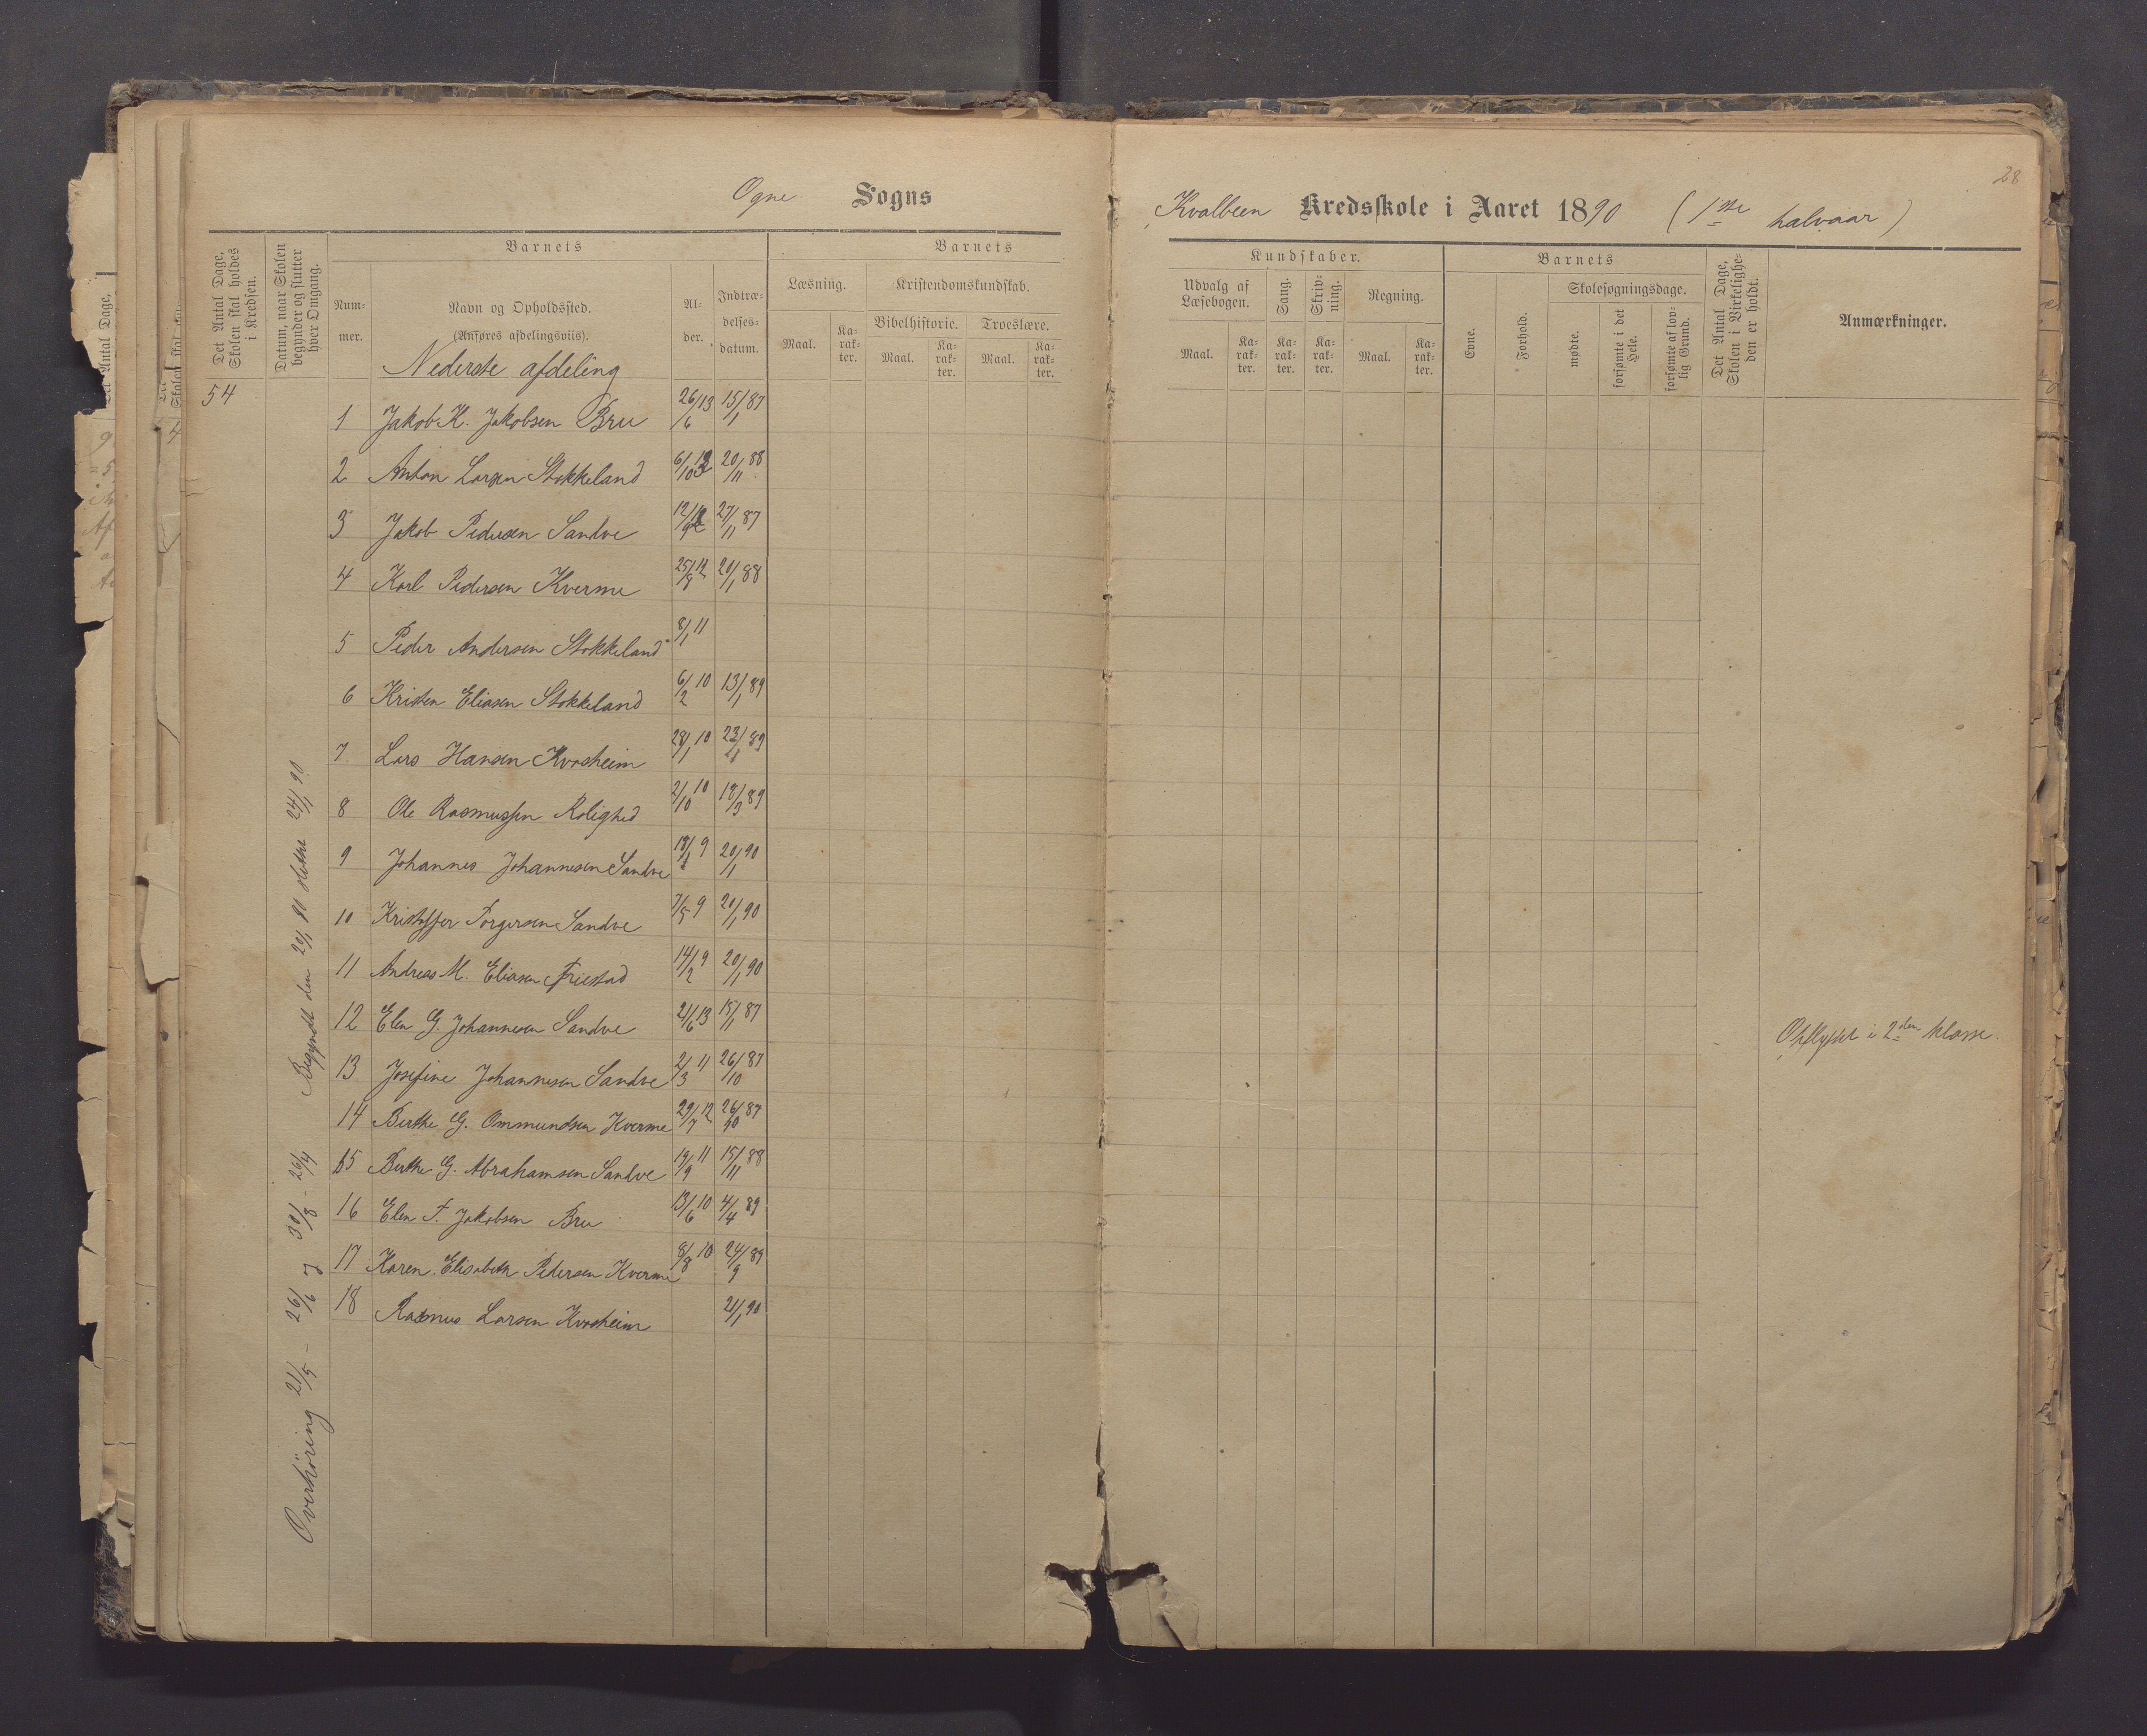 Ogne Sogns
Det Antal Dage, Skolen skal holdes i Kredsen.
Datum, naar Skolen begynder og slutter hver Omgang.
Barnets
Nummer.
Navn og Opholdssted.
(Anføres afdelingsviis).
Alder.
Indtrædelsesdatum.
Barnets
Læsning.
Kristendomskundskab.
Bibelhistorie.
Troeslære.
Maal.
Karakter.
Maal.
Karakter.
Maal.
Karakter.
Nederste afdeling
54
1 Jakob K. Jakobsen Bru 26/6 13 15/1 87
2 Anton Larsen Stokkeland 6/10 20/11 88
3 Jakob Pedersen Sandve 12/9 27/11 87
4 Karl Pedersen Kverme 25/8 12 20/1 88
5 Peder Andersen Stokkeland 8/1 11
6 Kristen Eliasen Stokkeland 6/2 10 13/1 89
7 Lars Hansen Kvasheim 28/1 10 23/1 89
8 Ole Rasmussen Rolighed 2/10 10 18/3 89
9 Johannes Johannesen Sandve 18/1 9 20/1 90
10 Kristoffer Torgersen Sandve 7/5 9 20/1 90
11 Andreas M. Eliasen 14/2 9 20/1 90
12 Elen G. Johannesen Sandve 21/6 13 15/11 87
13 Josefine Johannesen Sandve 2/3 11 26/10 87
14 Berthe G. Ommundsen Kverme 29/7 12 26/10 87
15 Berthe G. Abrahamsen Sandve 19/9 11 15/11 88
16 Elen T. Jakobsen Bru 13/6 10 4/4 89
17 Karen Elisabeth Pedersen Kverme 8/8 10 24/9 89
18 Rasmus Larsen Kvasheim 21/1 90
Begyndt den 20/1 90 sluttet 24/1 90
Overhöring 21/5 - 26/6
Kvalbeen Kredsskole i Aaret 1890 (1ste halvaar)
28
Kundskaber.
Udvalg af Læsebogen.
Sang.
Skrivning.
Regning.
Maal.
Karakter.
Karakter.
Karakter.
Maal.
Karakter.
Barnets
Evne.
Forhold.
Skolesøgningsdage.
mødte.
forsømte i det Hele.
forsømte af lovlig Grund.
Det Antal Dage, Skolen i Virkeligheden er holdt.
Anmærkninger.
Opflyttet i 2den klasse.